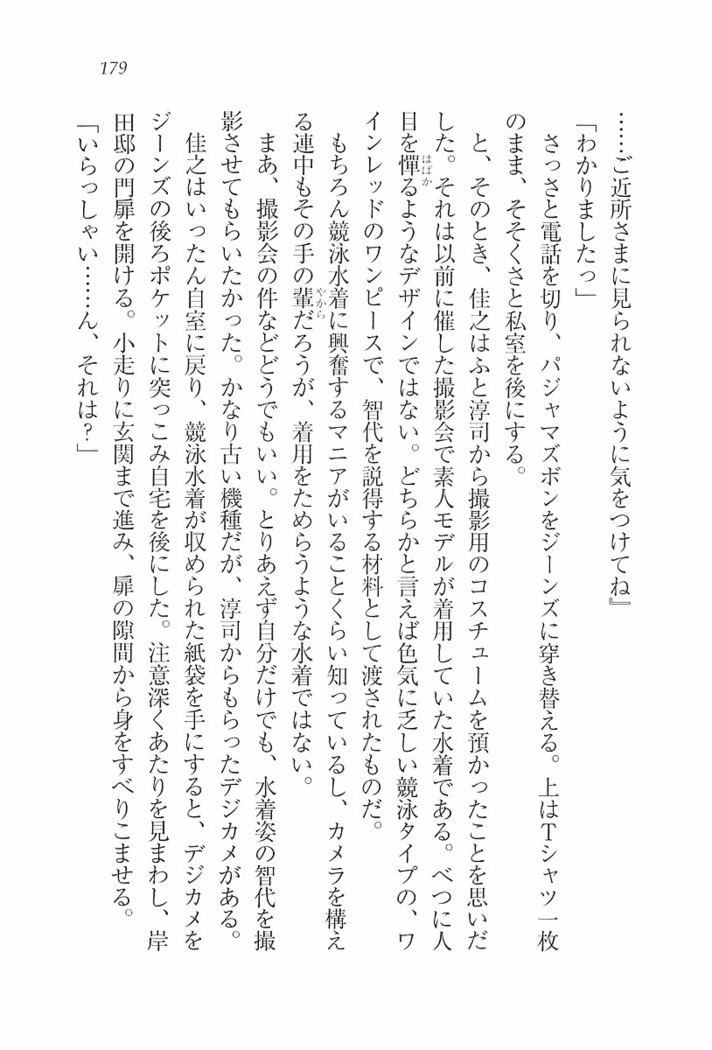 179
……ご近所さまに見られないように気をつけてね』
「わかりましたっ」
さっさと電話を切り、パジャマズボンをジーンズに穿き替える。上はTシャツ一枚
のまま、そそくさと私室を後にする。
と、そのとき、佳之はふと淳司から撮影用のコスチュームを預かったことを思いだ
した。それは以前に催した撮影会で素人モデルが着用していた水着である。べつに人
目を憚るようなデザインではない。どちらかと言えば色気に乏しい競泳タイプの、ワ
インレッドのワンピースで、智代を説得する材料として渡されたものだ。
もちろん競泳水着に興奮するマニアがいることくらい知っているし、カメラを構え
る連中もその手の輩だろうが、着用をためらうような水着ではない。
まあ、撮影会の件などどうでもいい。とりあえず自分だけでも、水着姿の智代を撮
影させてもらいたかった。かなり古い機種だが、淳司からもらったデジカメがある。
佳之はいったん自室に戻り、競泳水着が収められた紙袋を手にすると、デジカメを
ジーンズの後ろポケットに突っこみ自宅を後にした。注意深くあたりを見まわし、岸
田邸の門扉を開ける。小走りに玄関まで進み、扉の隙間から身をすべりこませる。
「いらっしゃい……ん、それは？」
はばか
やから